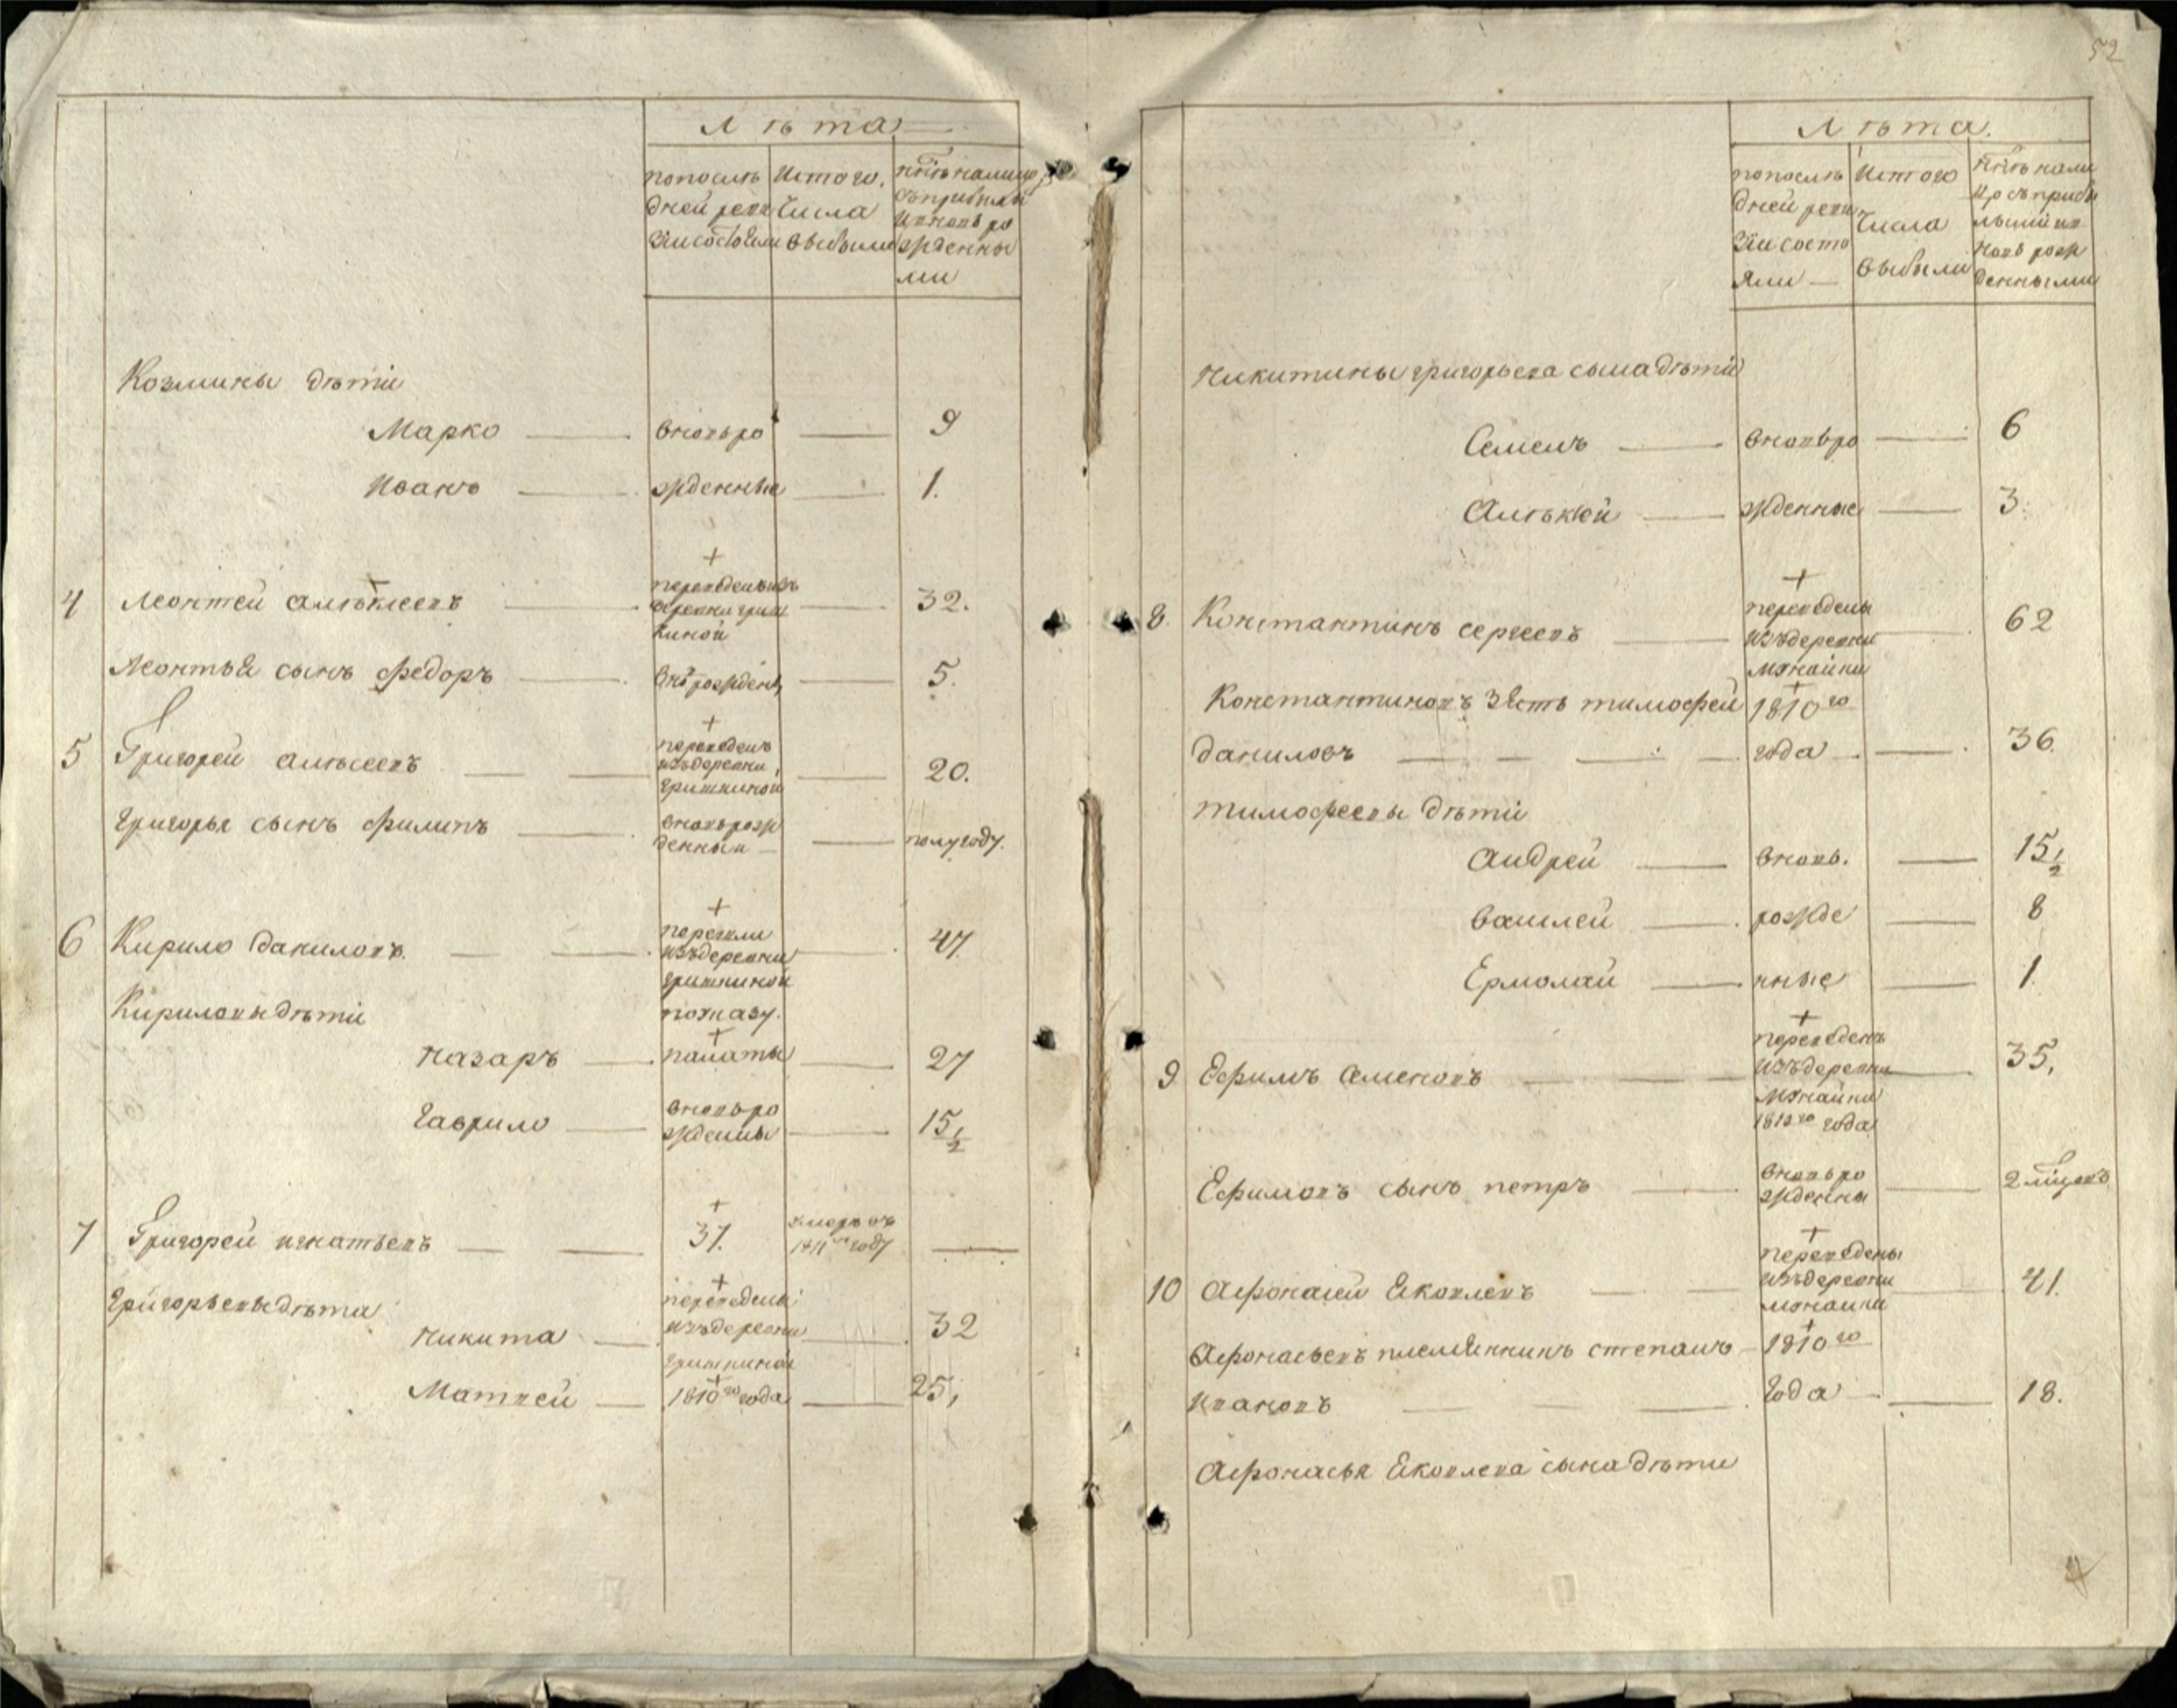 Лѣта
по послѣ
дней реви
зіи состояли
Истого
числа
выбыли
ннѣ налицо
съприбылы
ивновь ро
жденны
ми
Козмины дѣти
Марко вновьро 9
Иванъ жденные 1.
4 Леонтей алѣксеевъ переведены изъ деревни гриш киной 32.
Леонтья сынъ федоръ внорожденъ 5.
5 Григорей алѣксеевъ переведенъ изъдеревни гришкиной 20.
Григорья сынъ филипъ вновьрож денныи полугоду.
6 Кирило даниловъ перешли изъдеревни гришкиной 47
Кириловы дѣти поуказу.
Назаръ палаты 27
Гаврило вновьро ждены 15 1/2
7 Григорей игнатьевъ 37. умеръ въ 1811м году
Григорьевы дѣти переведены
Никита изъдеревни 32
гришкиной
Матвей 1810го года 25,
52
Лѣта.
по послѣ
дней реви
зіи состо
яли
Истого
числа
выбыли
ннѣ нали
цо съприбы
лыми ив
новь рож
денными
Никитины григорьева сына дѣти
Семенъ вновьро 6
Алѣксѣй жденные 3.
8. Константинъ сергеевъ переведены изъдеревни можайки 62
Константиновъ зять тимофей 1810го
даниловъ года 36.
тимофеевы дѣти
андрей вновь. 15 1/2
василей рожде 8
Ермолай нные 1
9 Ефимъ Семеновъ переведенъ изъдеревни можайки 1810го года 35,
Ефимовъ сынъ петръ вновьро жденны 2 мѣцовъ
10 Афонасей Яковлевъ переведены изъдеревни можайки 41.
Афонасьевъ племянникъ степанъ 1810го
Ивановъ года 18.
Афонасья Яковлева сына дѣти